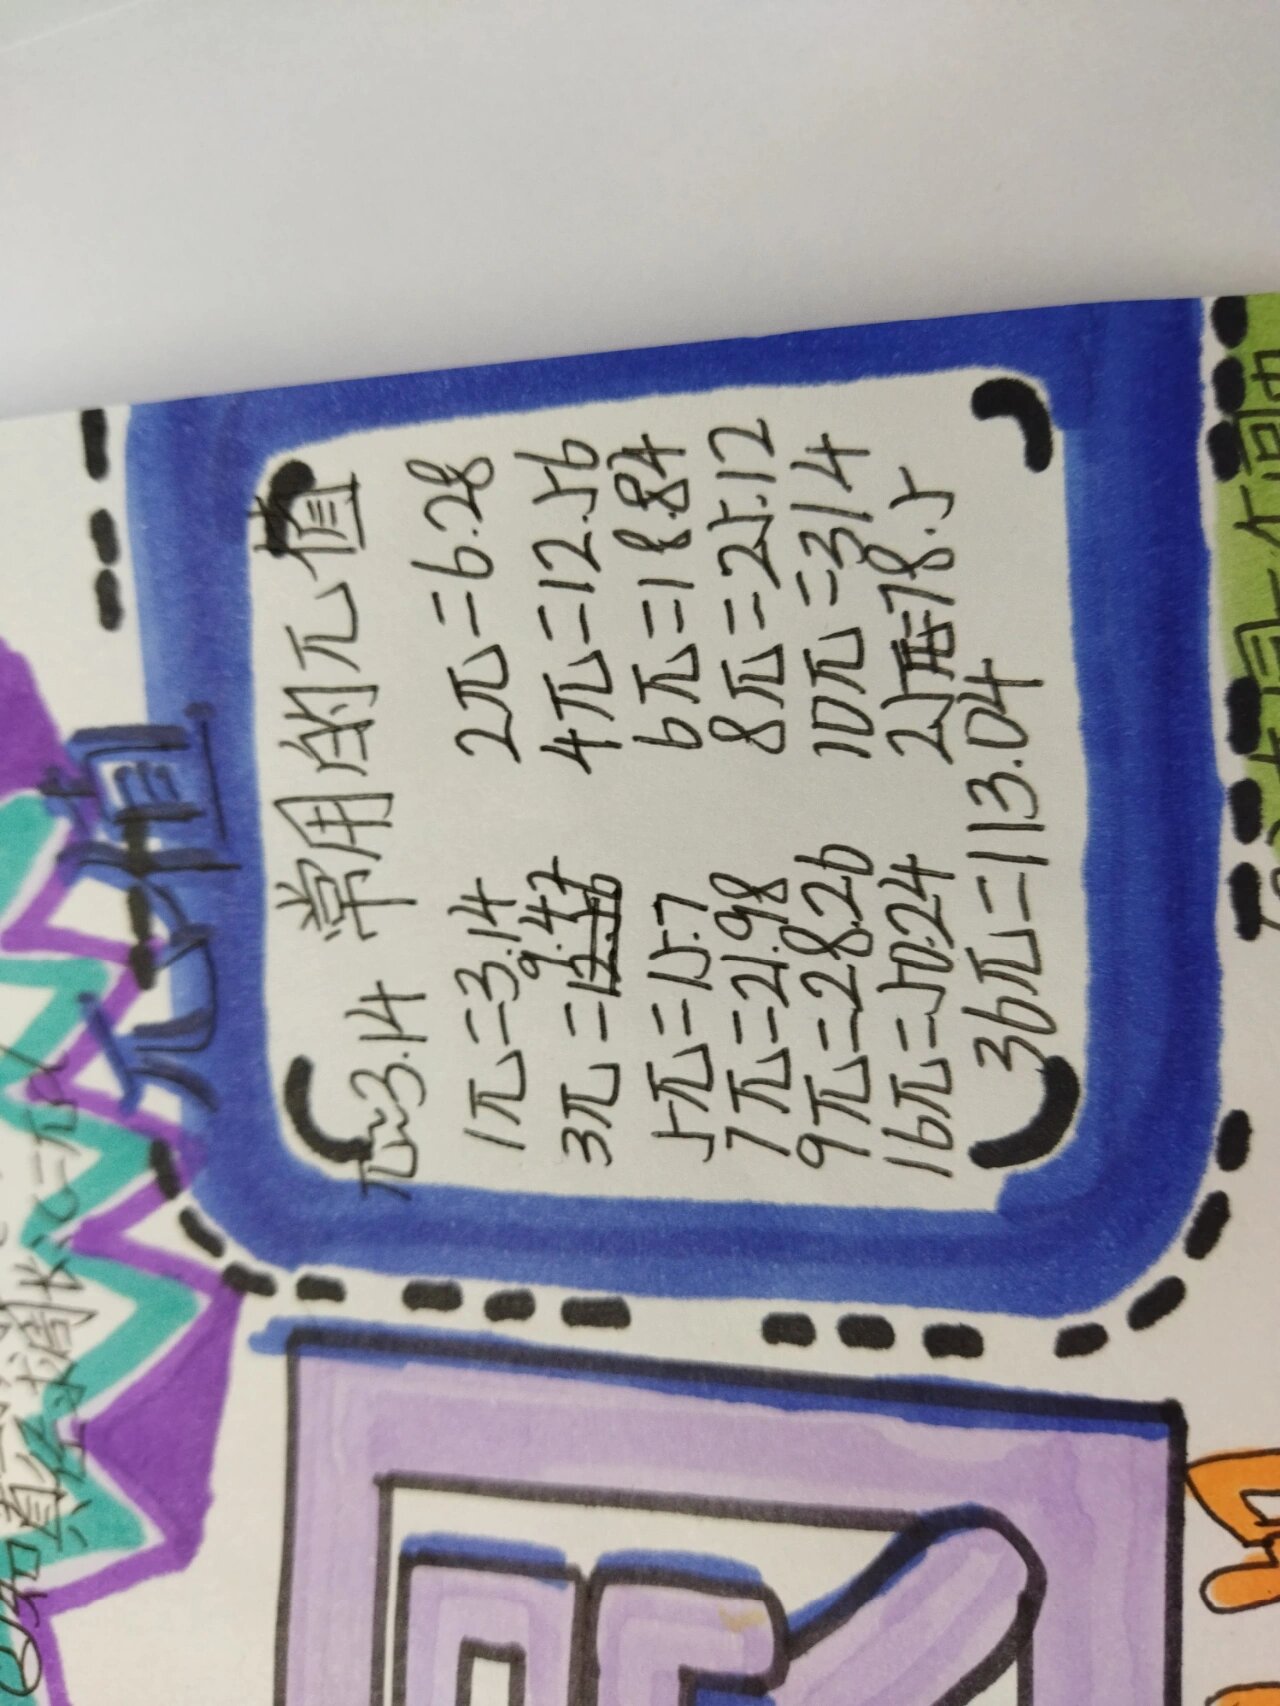 已知直径求周长:C=πd
π值
π≈3.14 常用的π值
1π=3.14 2π=6.28
3π=9.42 4π=12.56
5π=15.7 6π=18.84
7π=21.98 8π=25.12
9π=28.26 10π=314
16π=50.24 25π=78.5
36π=113.04